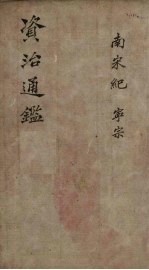 南宋紀 寧宗
資治通鑑